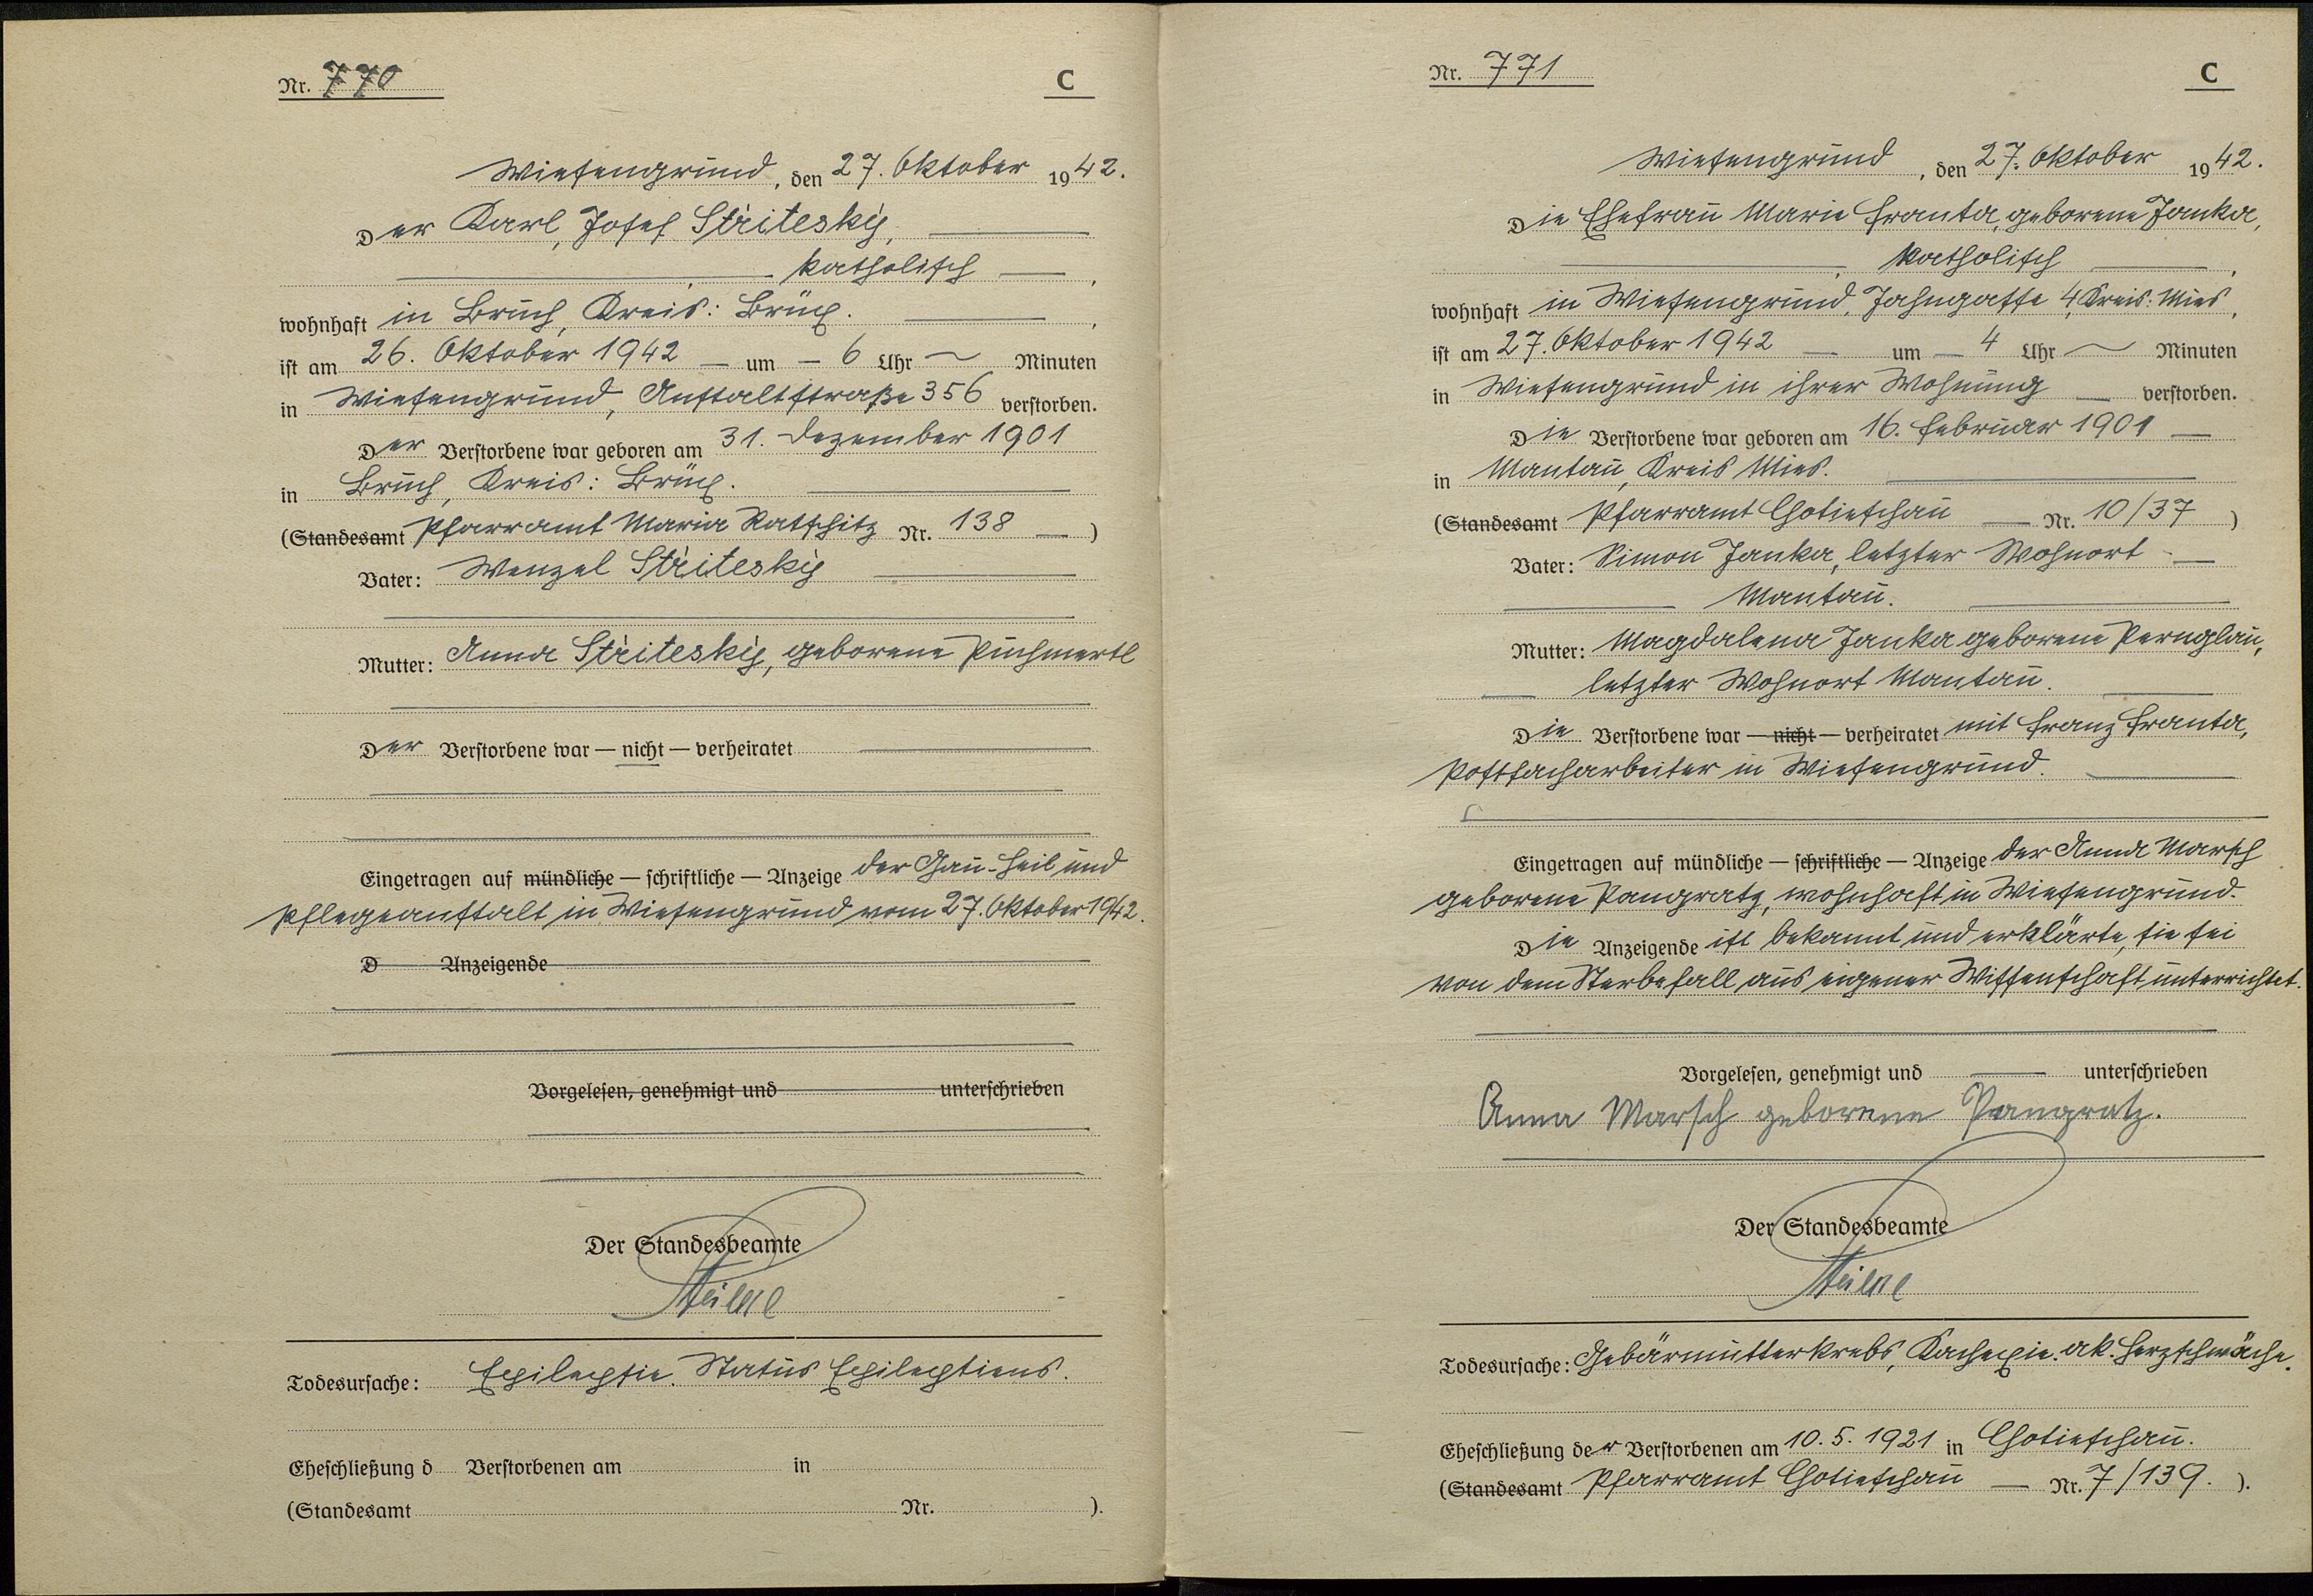 Nr. 770
C
Wiesengrund, den 27. Oktober 1942.
Der Karl, Josef Střiteský,
katholisch,
wohnhaft in Bruch, Kreis: Brüx.
ist am 26. Oktober 1942 um 6 Uhr Minuten
in Wiesengrund, Anstaltstraße 356 verstorben.
Der Verstorbene war geboren am 31. Dezember 1901
in Bruch, Kreis: Brüx.
(Standesamt Pfarramt Maria Ratschitz Nr. 138)
Vater: Wenzel Střiteský
Mutter: Anna Střiteský, geborene Puchmertl
Der Verstorbene war — nicht — verheiratet
Eingetragen auf mündliche — schriftliche — Anzeige der Gau-Heil und
Pflegeanstalt in Wiesengrund vom 27. Oktober 1942.
D Anzeigende
Vorgelesen, genehmigt und unterschrieben
Der Standesbeamte
Todesursache: Epilepsie. Status Epilepticus.
Eheschließung d Verstorbenen am in
(Standesamt Nr. ).
Nr. 771
C
Wiesengrund, den 27. Oktober 1942.
Die Ehefrau Marie Franta, geborene Janka,
katholisch,
wohnhaft in Wiesengrund, Jahngasse 4, Kreis: Mies,
ist am 27. Oktober 1942 um 4 Uhr Minuten
in Wiesengrund in ihrer Wohnung verstorben.
Die Verstorbene war geboren am 16. Februar 1901
in Mantau, Kreis Mies.
(Standesamt Pfarramt Chotieschau Nr. 10/37)
Vater: Simon Janka, letzter Wohnort
Mantau.
Mutter: Magdalena Janka geborene Pernglau,
letzter Wohnort Mantau.
Die Verstorbene war — nicht — verheiratet mit Franz Franta,
Postfacharbeiter in Wiesengrund.
Eingetragen auf mündliche — schriftliche — Anzeige der Anna Marsch
geborene Pangratz, wohnhaft in Wiesengrund.
Die Anzeigende ist bekannt und erklärte, sie sei
von dem Sterbefall aus eigener Wissenschaft unterrichtet.
Vorgelesen, genehmigt und unterschrieben
Anna Marsch geborene Pangratz.
Der Standesbeamte
Todesursache: Gebärmutterkrebs, Kachexie. ak. Herzschwäche.
Eheschließung der Verstorbenen am 10. 5. 1921 in Chotieschau.
(Standesamt Pfarramt Chotieschau Nr. 7/139. ).